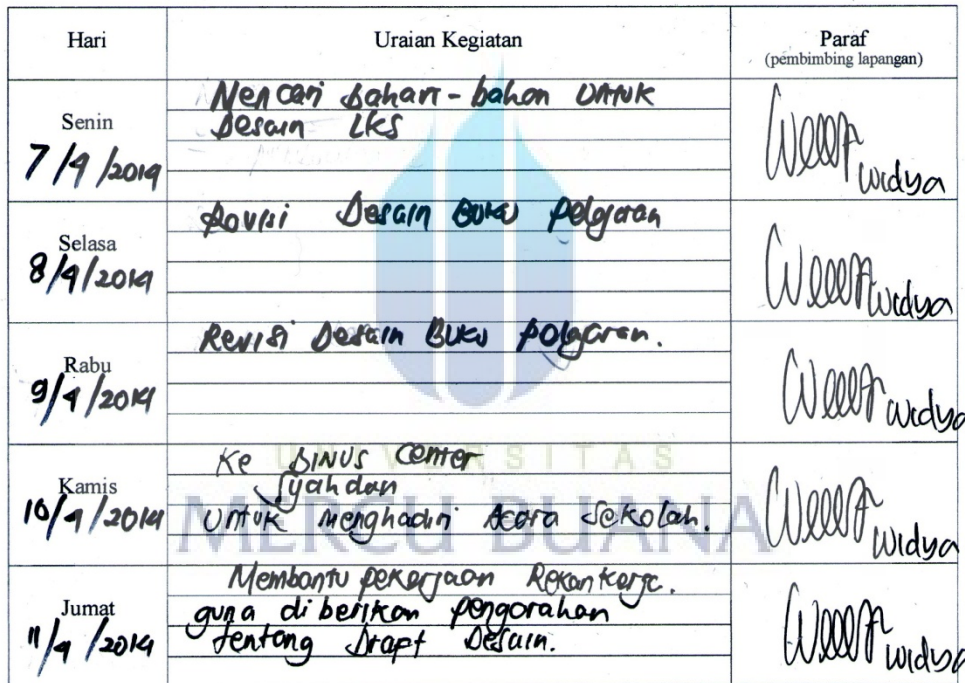 Hari Uraian Kegiatan Paraf
(pembimbing lapangan)
Senin
7/4/2014
Mencari bahan-bahan untuk
Desain LKS
Widya
Selasa
8/4/2014
Revisi Desain Buku Pelajaran
Widya
Rabu
9/4/2014
Revisi Desain Buku Pelajaran.
Widya
Kamis
10/4/2014
Ke BINUS Center
Syahdan
Untuk menghadiri Acara Sekolah.
Widya
Jumat
11/4/2014
Membantu pekerjaan Rekan kerja.
guna diberikan pengarahan
tentang Drapt Desain.
Widya
UNIVERSITAS
MERCU BUANA